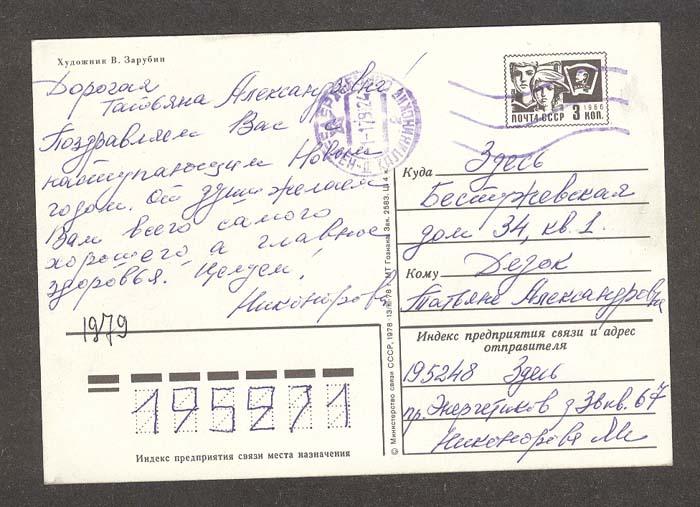 Художник В. Зарубин
Дорогая
Татьяна Александровна!
Поздравляем Вас
наступающим Новым
годом. От души желаем
Вам всего самого
хорошего а главное
здоровья. Целуем!
Никоноровы
1979
195271
Индекс предприятия связи места назначения
© Министерство связи СССР, 1978 МТ Гознака. Зак. 2583.
ПОЧТА СССР 3 КОП.
1966
Куда Здесь
Бестужевская
дом 34, кв. 1.
Кому Дезок
Татьяне Александровне
Индекс предприятия связи и адрес
отправителя
195248 Здесь
пр. Энергетиков д 3 кв. 67
Никонорова М